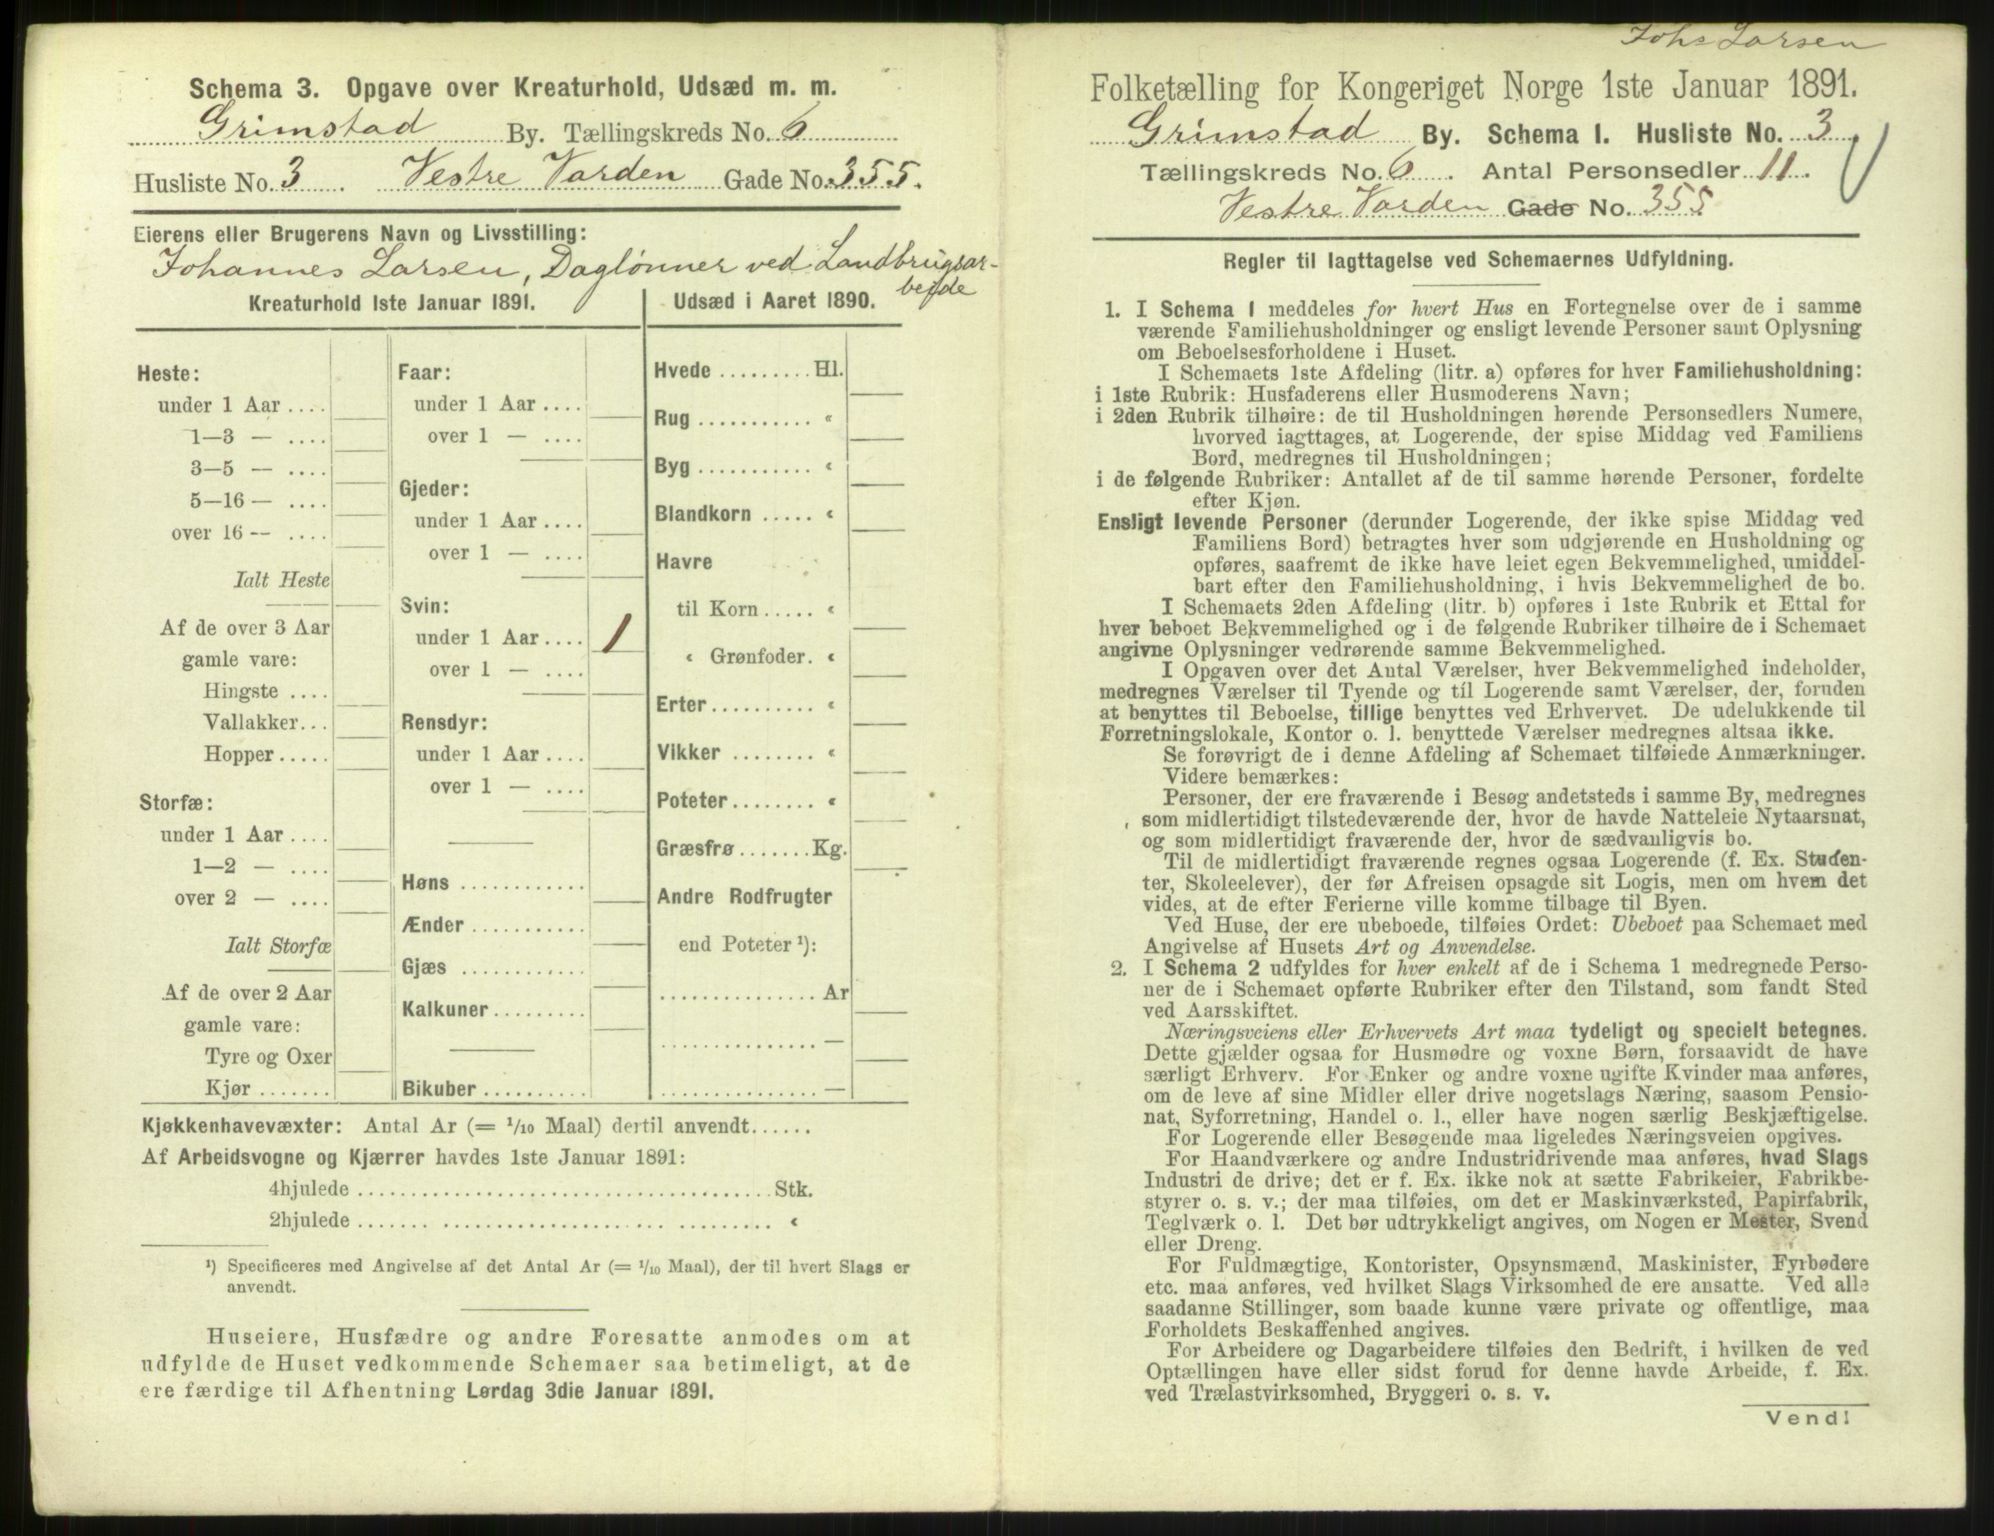 Schema 3. Opgave over Kreaturhold, Udsæd m. m.
Grimstad By. Tællingskreds No. 6
Husliste No. 3 . Vestre Varden Gade No. 355.
Eierens eller Brugerens Navn og Livsstilling:
Johannes Larsen, Daglønner ved Landbrugsar-
beide
Kreaturhold 1ste Januar 1891.
Heste:
under 1 Aar ....
1—3 — ....
3—5 — ....
5—16 — ....
over 16 — ....
Ialt Heste
Af de over 3 Aar
gamle vare:
Hingste ....
Vallakker...
Hopper.....
Storfæ:
under 1 Aar ....
1—2 — ....
over 2 — ....
Ialt Storfæ
Af de over 2 Aar
gamle vare:
Tyre og Oxer
Kjør .......
Faar:
under 1 Aar ....
over 1 — ....
Gjeder:
under 1 Aar ....
over 1 — ....
Svin:
under 1 Aar .... 1
over 1 — ....
Rensdyr:
under 1 Aar ....
over 1 — ....
Høns ............
Ænder ...........
Gjæs ............
Kalkuner.........
Bikuber ..........
Udsæd i Aaret 1890.
Hvede ......... Hl.
Rug ........... «
Byg ........... «
Blandkorn ..... «
Havre
til Korn ..... «
« Grønfoder. «
Erter.......... «
Vikker ........ «
Poteter........ «
Græsfrø ....... Kg.
Andre Rodfrugter
end Poteter ¹):
............... Ar
............... —
............... —
Kjøkkenhavevæxter: Antal Ar (= 1/10 Maal) dertil anvendt......
Af Arbeidsvogne og Kjærrer havdes 1ste Januar 1891:
4hjulede ........................................ Stk.
2hjulede ....... ...................... ......... «
¹) Specificeres med Angivelse af det Antal Ar (= 1/10 Maal), der til hvert Slags er
anvendt.
Huseiere, Husfædre og andre Foresatte anmodes om at
udfylde de Huset vedkommende Schemaer saa betimeligt, at de
ere færdige til Afhentning Lørdag 3die Januar 1891.
Johs Larsen
Folketælling for Kongeriget Norge 1ste Januar 1891.
Grimstad By. Schema 1. Husliste No. 3
Tællingskreds No. 6 . Antal Personsedler 11 .
Vestre Varden Gade No. 355
Regler til Iagttagelse ved Schemaernes Udfyldning.
1. I Schema 1 meddeles for hvert Hus en Fortegnelse over de i samme
værende Familiehusholdninger og ensligt levende Personer samt Oplysning
om Beboelsesforholdene i Huset.
I Schemaets 1ste Afdeling (litr. a) opføres for hver Familiehusholdning:
i 1ste Rubrik: Husfaderens eller Husmoderens Navn;
i 2den Rubrik tilhøire: de til Husholdningen hørende Personsedlers Numere,
hvorved iagttages, at Logerende, der spise Middag ved Familiens
Bord, medregnes til Husholdningen;
i de følgende Rubriker: Antallet af de til samme hørende Personer, fordelte
efter Kjøn.
Ensligt levende Personer (derunder Logerende, der ikke spise Middag ved
Familiens Bord) betragtes hver som udgjørende en Husholdning og
opføres, saafremt de ikke have leiet egen Bekvemmelighed, umiddel-
bart efter den Familiehusholdning, i hvis Bekvemmelighed de bo.
I Schemaets 2den Afdeling (litr. b) opføres i 1ste Rubrik et Ettal for
hver beboet Bekvemmelighed og i de følgende Rubriker tilhøire de i Schemaet
angivne Oplysninger vedrørende samme Bekvemmelighed.
I Opgaven over det Antal Værelser, hver Bekvemmelighed indeholder,
medregnes Værelser til Tyende og til Logerende samt Værelser, der, foruden
at benyttes til Beboelse, tillige benyttes ved Erhvervet. De udelukkende til
Forretningslokale, Kontor o. l. benyttede Værelser medregnes altsaa ikke.
Se forøvrigt de i denne Afdeling af Schemaet tilføiede Anmærkninger.
Videre bemærkes:
Personer, der ere fraværende i Besøg andetsteds i samme By, medregnes
som midlertidigt tilstedeværende der, hvor de havde Natteleie Nytaarsnat,
og som midlertidigt fraværende der, hvor de sædvanligvis bo.
Til de midlertidigt fraværende regnes ogsaa Logerende (f. Ex. Studen-
ter, Skoleelever), der før Afreisen opsagde sit Logis, men om hvem det
vides, at de efter Ferierne ville komme tilbage til Byen.
Ved Huse, der ere ubeboede, tilføies Ordet: Ubeboet paa Schemaet med
Angivelse af Husets Art og Anvendelse.
2. I Schema 2 udfyldes for hver enkelt af de i Schema 1 medregnede Perso-
ner de i Schemaet opførte Rubriker efter den Tilstand, som fandt Sted
ved Aarsskiftet.
Næringsveiens eller Erhvervets Art maa tydeligt og specielt betegnes.
Dette gjælder ogsaa for Husmødre og voxne Børn, forsaavidt de have
særligt Erhverv. For Enker og andre voxne ugifte Kvinder maa anføres,
om de leve af sine Midler eller drive nogetslags Næring, saasom Pensio-
nat, Syforretning, Handel o. l., eller have nogen særlig Beskjæftigelse.
For Logerende eller Besøgende maa ligeledes Næringsveien opgives.
For Haandværkere og andre Industridrivende maa anføres, hvad Slags
Industri de drive; det er f. Ex. ikke nok at sætte Fabrikeier, Fabrikbe-
styrer o. s. v.; der maa tilføies, om det er Maskinværksted, Papirfabrik,
Teglværk o. l. Det bør udtrykkeligt angives, om Nogen er Mester, Svend
eller Dreng.
For Fuldmægtige, Kontorister, Opsynsmænd, Maskinister, Fyrbødere
etc. maa anføres, ved hvilket Slags Virksomhed de ere ansatte. Ved alle
saadanne Stillinger, som baade kunne være private og offentlige, maa
Forholdets Beskaffenhed angives.
For Arbeidere og Dagarbeidere tilføies den Bedrift, i hvilken de ved
Optællingen have eller sidst forud for denne havde Arbeide, f. Ex.
ved Trælastvirksomhed, Bryggeri o. s. v.
Vend!